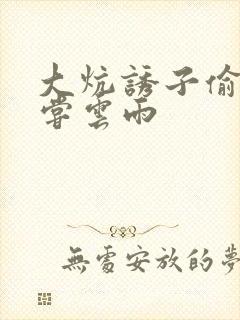 大炕誘子偷
嘗雲雨
無處安放的夢